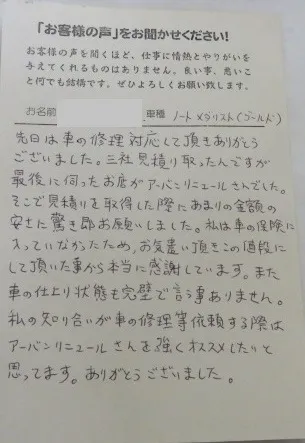 「お客様の声」をお聞かせください!
お客様の声を聞くほど、仕事に情熱とやりがいを
与えてくれるものはありません。良い事、悪いこ
と何でも結構です。ぜひよろしくお願い致します。
お名前 車種 ノート メダリスト(ゴールド)
先日は車の修理対応して頂きありがとう
ございました。三社見積り取ったんですが
最後に伺ったお店がアーバンリニュールさんでした。
そこで見積りを取得した際にあまりの金額の
安さに驚き即お願いしました。私は車の保険に
入っていなかったため、お気遣い頂きこの値段に
して頂いた事から本当に感謝しています。また
車の仕上り状態も完璧で言う事ありません。
私の知り合いが車の修理等依頼する際は
アーバンリニュールさんを強くオススメしたいと
思ってます。ありがとうございました。